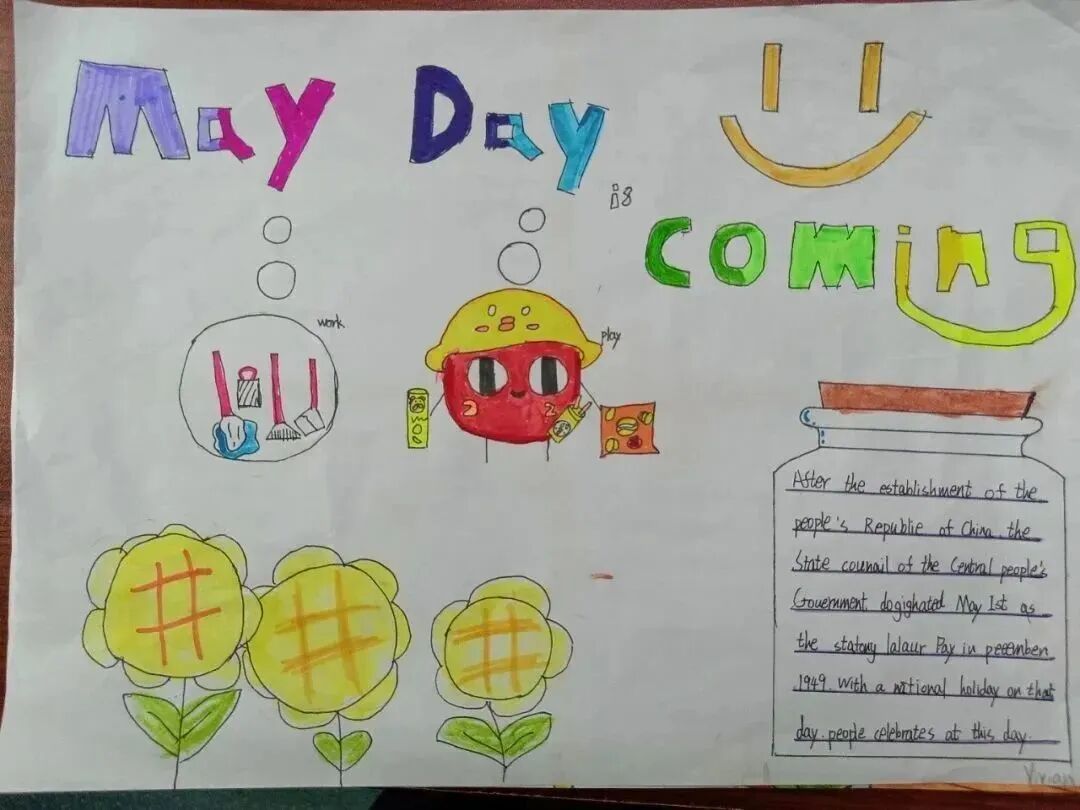 May Day
is
coming
work
play
After the establishment of the
people's Republie of China. the
State counail of the Central people's
Government dogighated May 1st as
the statony lalaur Pay in peeember
1949. With a national holiday on that
day. people celebrates at this day.
Vivian